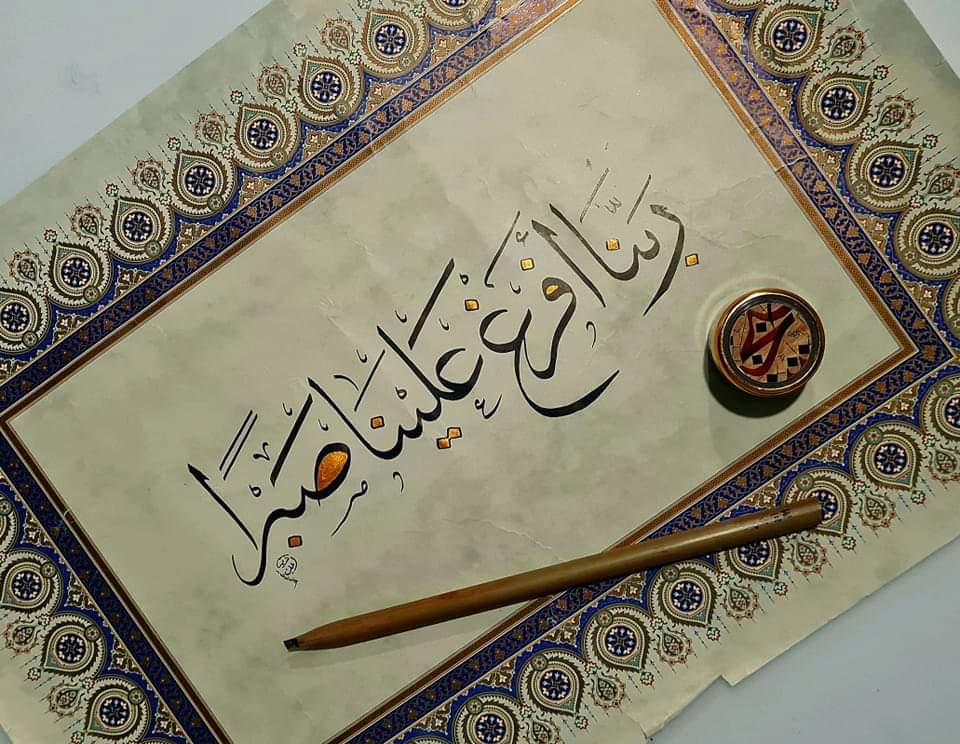 ربنا أفرغ علينا صبرًا